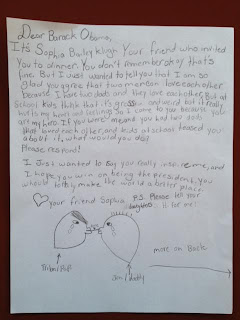 Dear Barack Obama,
It's Sophia Bailey Klugh. Your friend who invited
You to dinner. You don't remember okay that's
fine. But I Just wanted to tell you that I am so
glad you agree that two men can love each other
because I have two dads and they love each other. But at
School kids think that it's gross and weird but it really
hurts my heart and feelings. So I come to you because you
are my hero. If you were me and you had two dads
that loved each other, and kids at school teased you
about it, what would you do?
Please respond!
I Just wanted to say you really inspire me, and
I hope you win on being the president. You
would totally make the world a better place.
Your friend Sophia
P.S. Please tell your
daughters Hi for me!
more on Back